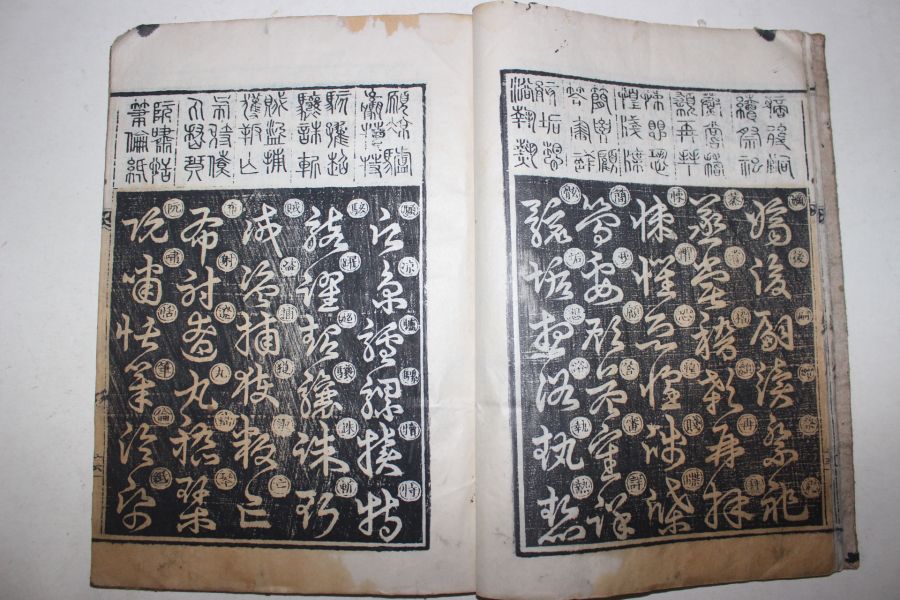 嫡後嗣
續祭祀
蒸嘗稽
顙再拜
悚懼恐
惶牋牒
簡要顧
答審詳
骸垢想
浴執熱
嫡後嗣續祭祀
蒸嘗稽顙再拜
悚懼恐惶牋牒
簡要顧答審詳
骸垢想浴執熱
願涼驢
騾犢特
駭躍超
驤誅斬
賊盜捕
獲叛亡
布射遼
丸嵇琴
阮嘯恬
筆倫紙
願涼驢騾犢特
駭躍超驤誅斬
賊盜捕獲叛亡
布射遼丸嵇琴
阮嘯恬筆倫紙